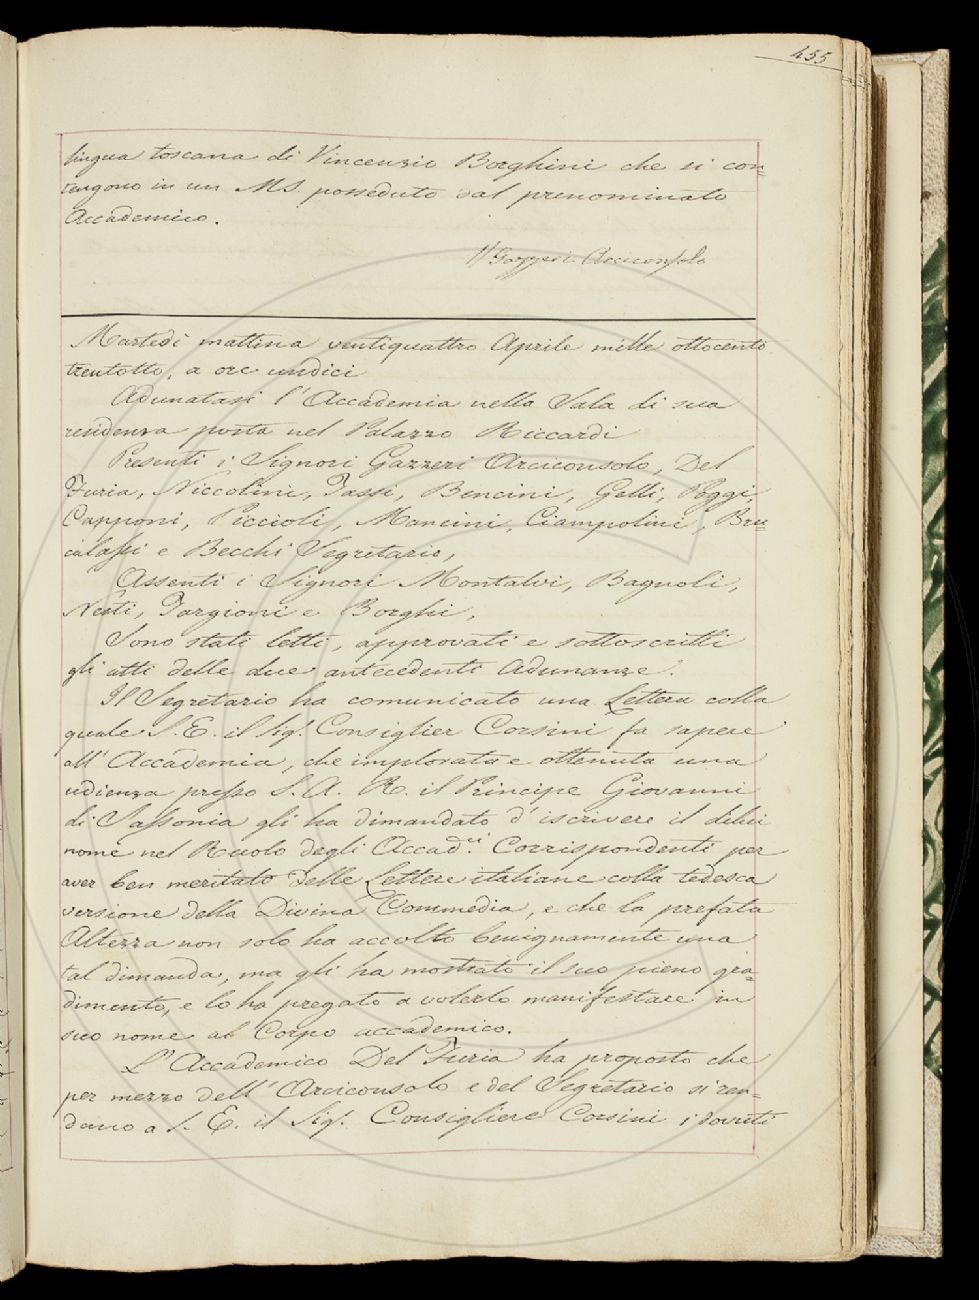 455
lingua toscana di Vincenzio Borghini che si con=
tengono in un MS. posseduto dal prenominato
Accademico.
Gazzeri Arciconsolo
Martedì mattina ventiquattro Aprile mille ottocento
trentotto, a ore undici
Adunatasi l'Accademia nella Sala di sua
residenza posta nel Palazzo Riccardi
Presenti i Signori Gazzeri Arciconsolo, Del
Furia, Niccolini, Tassi, Bencini, Gelli, Poggi,
Capponi, Piccioli, Mancini, Ciampolini, Bru=
calassi e Becchi Segretario,
Assenti i Signori Montalvi, Bagnoli,
Nesti, Targioni e Borghi,
Sono stati letti, approvati e sottoscritti
gli atti delle due antecedenti Adunanze.
Il Segretario ha comunicato una Lettera colla
quale S. E. il Sig. Consiglier Corsini fa sapere
all'Accademia, che implorata e ottenuta una
udienza presso S. A. R. il Principe Giovanni
di Sassonia gli ha dimandato d'iscrivere il di lui
nome nel Ruolo degli Accad.ci Corrispondenti per
aver ben meritato delle Lettere italiane colla tedesca
versione della Divina Commedia, e che la prefata
Altezza non solo ha accolto benignamente una
tal dimanda, ma gli ha mostrato il suo pieno gra=
dimento, e lo ha pregato a volerlo manifestare in
suo nome al Corpo accademico.
L'Accademico Del Furia ha proposto che
per mezzo dell'Arciconsolo e del Segretario si ren=
dano a S. E. il Sig. Consigliere Corsini i dovuti